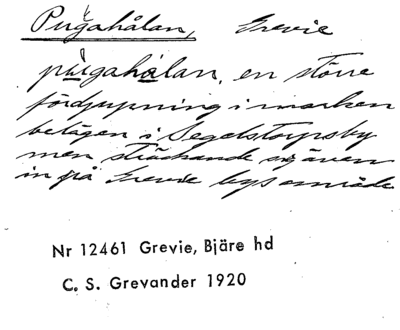 Pugahålan, Grevie
pugahålan, en större
fördjupning i marken
belägen i Segelstorpsby
men sträckande sig även
in på Grevie bys område
Nr 12461 Grevie, Bjäre hd
C. S. Grevander 1920